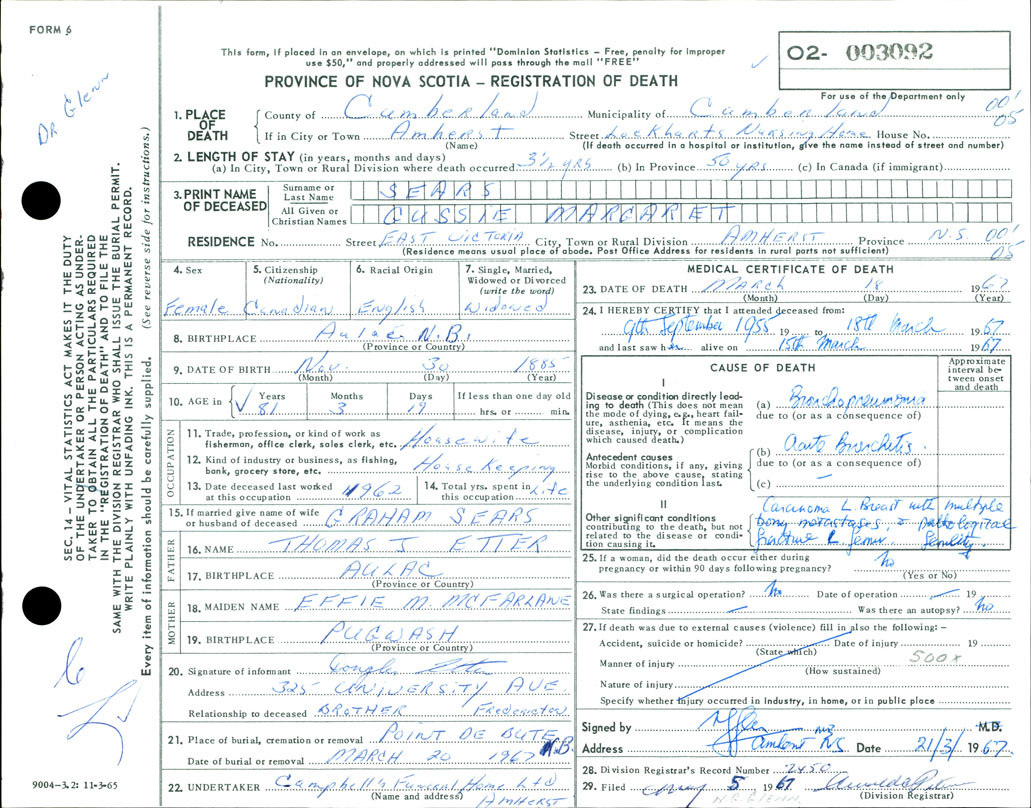 FORM 6
This form, if placed in an envelope, on which is printed "Dominion Statistics – Free, penalty for improper
use $50," and properly addressed will pass through the mail "FREE"
O2- 003092
For use of the Department only
PROVINCE OF NOVA SCOTIA – REGISTRATION OF DEATH
Dr Glenn
00'
05
1. PLACE OF DEATH
County of Cumberland Municipality of Cumberland
If in City or Town Amherst Street Lockharts Nursing Home House No.
(Name) (If death occurred in a hospital or institution, give the name instead of street and number)
2. LENGTH OF STAY (in years, months and days)
(a) In City, Town or Rural Division where death occurred 3½ yrs (b) In Province 50 yrs (c) In Canada (if immigrant)
3. PRINT NAME OF DECEASED
Surname or Last Name SEARS
All Given or Christian Names GUSSIE MARGARET
RESIDENCE No. Street EAST VICTORIA City, Town or Rural Division AMHERST Province N.S. 00'
05
(Residence means usual place of abode. Post Office Address for residents in rural parts not sufficient)
4. Sex
Female
5. Citizenship
(Nationality)
Canadian
6. Racial Origin
English
7. Single, Married,
Widowed or Divorced
(write the word)
Widowed
8. BIRTHPLACE Aulac N.B.
(Province or Country)
9. DATE OF BIRTH Nov. 30 1885
(Month) (Day) (Year)
10. AGE in Years Months Days If less than one day old
81 3 19 hrs. or min.
OCCUPATION
11. Trade, profession, or kind of work as
fisherman, office clerk, sales clerk, etc. Housewife
12. Kind of industry or business, as fishing,
bank, grocery store, etc. House Keeping
13. Date deceased last worked
at this occupation 1962
14. Total yrs. spent in
this occupation Life
15. If married give name of wife
or husband of deceased GRAHAM SEARS
FATHER
16. NAME THOMAS J ETTER
17. BIRTHPLACE AULAC
(Province or Country)
MOTHER
18. MAIDEN NAME EFFIE M. MCFARLANE
19. BIRTHPLACE PUGWASH
(Province or Country)
20. Signature of informant Douglas Etter
Address 325 UNIVERSITY AVE.
Relationship to deceased BROTHER Fredericton
21. Place of burial, cremation or removal POINT DE BUTE N.B.
Date of burial or removal MARCH 20 1967
22. UNDERTAKER Campbell's Funeral Home Ltd
(Name and address) AMHERST
MEDICAL CERTIFICATE OF DEATH
23. DATE OF DEATH March 18 1967
(Month) (Day) (Year)
24. I HEREBY CERTIFY that I attended deceased from:
9th September 1955 19 to 18th March 1967
and last saw her alive on 15th March 1967
CAUSE OF DEATH
Approximate
interval be-
tween onset
and death
I
Disease or condition directly lead-
ing to death (This does not mean
the mode of dying, e.g., heart fail-
ure, asthenia, etc. It means the
disease, injury, or complication
which caused death.)
(a) Bronchopneumonia
due to (or as a consequence of)
Antecedent causes
Morbid conditions, if any, giving
rise to the above cause, stating
the underlying condition last.
(b) Acute Bronchitis.
due to (or as a consequence of)
(c) —
II
Other significant conditions
contributing to the death, but not
related to the disease or condi-
tion causing it.
Carcinoma L. Breast with multiple
bony metastases, c pathological
fracture L femur Senility.
25. If a woman, did the death occur either during
pregnancy or within 90 days following pregnancy? No
(Yes or No)
26. Was there a surgical operation? No Date of operation — 19
State findings — Was there an autopsy? No
27. If death was due to external causes (violence) fill in also the following: –
Accident, suicide or homicide? Date of injury 19
(State which)
500x
Manner of injury
(How sustained)
Nature of injury
Specify whether injury occurred in industry, in home, or in public place
Signed by M.D.
Address Amherst NS Date 21/3/ 1967
28. Division Registrar's Record Number 2450
29. Filed May 5 1967
(Division Registrar)
N.G. GLENN.
SEC. 14 – VITAL STATISTICS ACT MAKES IT THE DUTY
OF THE UNDERTAKER OR PERSON ACTING AS UNDER-
TAKER TO OBTAIN ALL THE PARTICULARS REQUIRED
IN THE "REGISTRATION OF DEATH" AND TO FILE THE
SAME WITH THE DIVISION REGISTRAR WHO SHALL ISSUE THE BURIAL PERMIT.
WRITE PLAINLY WITH UNFADING INK. THIS IS A PERMANENT RECORD.
Every item of information should be carefully supplied. (See reverse side for instructions.)
9004–3.2: 11-3-65